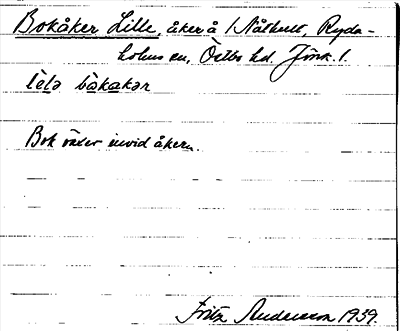 Bokåker Lille, åker å 1 Nåthult, Ryda-
holms sn, Östbo hd. Jönk. l.
lìlə bòkakər
Bok växer invid åkern.
Fritz Andersson 1939.